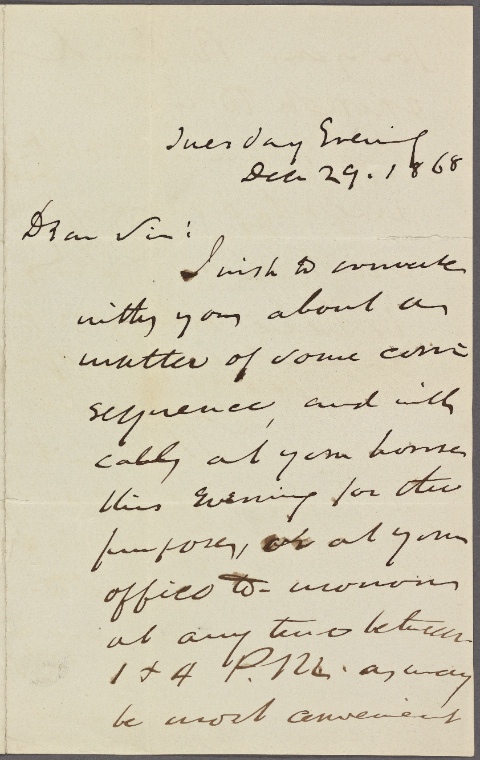 Tuesday Evening
Dec 29. 1868
Dear Sir:
I wish to consult
with you about a
matter of some con-
sequence, and will
call at your house
this Evening for the
purpose, or at your
office to-morrow
at any time between
1 & 4 P.M. as may
be most convenient